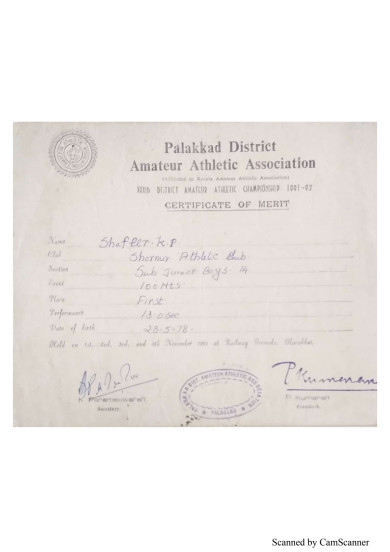 Palakkad District
Amateur Athletic Association
(Affiliated to Kerala Amateur Athletic Association)
DISTRICT AMATEUR ATHLETIC CHAMPIONSHIP 1991-92
CERTIFICATE OF MERIT
Name Shafeer. K.P
Club Shornur Athletic Club
Section Sub Junior Boys 14
Event 100 Mts
Place First
Performance 13.0 Sec
Date of birth 23-5-78
Held on 1st, 2nd, 3rd, and 4th November 1991 at Railway Grounds,
K Parameswaran
Secretary
PALAKKAD
P Kumaran
P Kumaran
President
Scanned by CamScanner